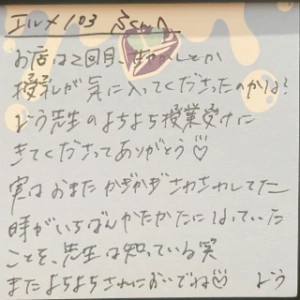 エルメ103
お店は2回目、生かしとか
授乳が気に入ってくださったのかな?
よう先生のよちよち授業受けに
きてくださってありがとう♡
実はおまたかぎかぎさわさわしてた
時がいちばんかたかたになっていた
ことを、先生は知っている笑
またよちよちされにおいでね♡ よう